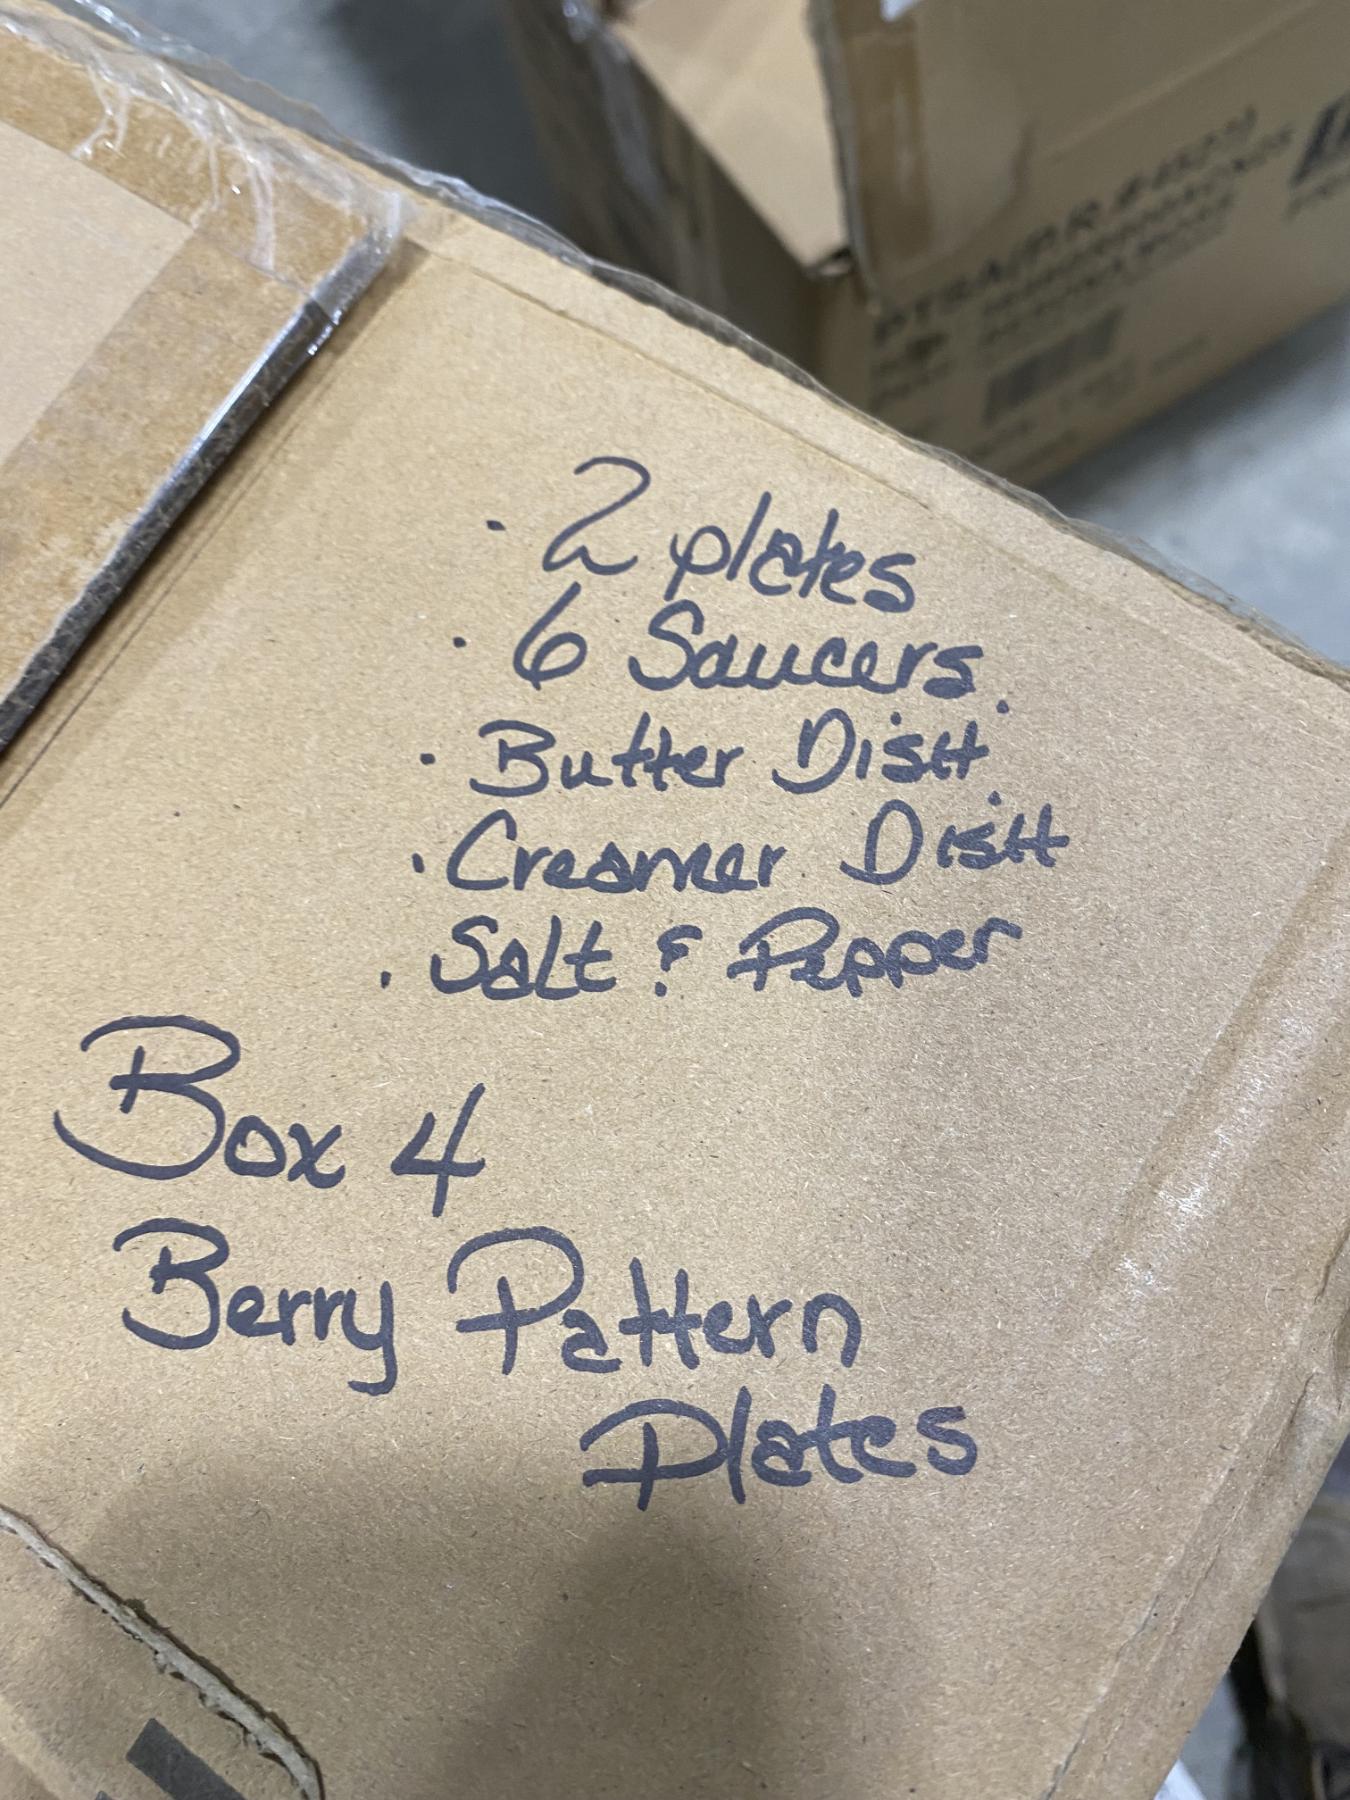 · 2 plates
· 6 Saucers.
· Butter Dish
· Creamer Dish
· Salt & Pepper
Box 4
Berry Pattern
Plates